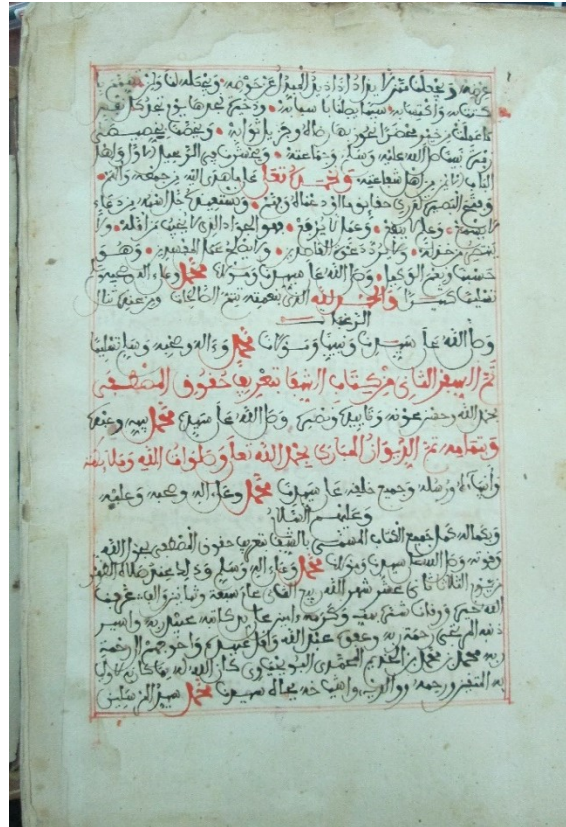 عرضه ويجعلنا ممن لا يذاد إذا ذيد المبدل عن حوضه ويجعله لنا ولمن تهمم
كتتابه واكتسابه سببا يصلنا بأسبابه وذخيرة نجدها يوم تجد كل نفس
ما عملت من خير محضرا نحوز بها رضاه وجزيل ثوابه ويخصنا بخصيصى
زمرة نبينا صلى الله عليه وسلم وجماعته ويحشرنا في الرعيل الأول وأهل
الباب الأيمن من أهل شفاعته ونحمده تعالى على ما هدى إليه من جمعه وألهم
وفتح البصيرة لدرك حقايق ما أودعناه وفهم ونستعيذه جل اسمه من دعاء
لا يسمع وعلم لا ينفع وعمل لا يرفع فهو الجواد الذي لا يخيب من أمله ولا
ينتصر من خذله ولا يرد دعوة القاصدين ولا يصلح عمل المفسدين وهو
حسبنا ونعم الوكيل وصلى الله على سيدنا ومولانا محمد وعلى آله وصحبه وسلم
تسليما كثيرا والحمد لله الذي بنعمته تتم الصالحات ومن عنده تنال
الرغبات
وصلى الله على سيدنا ونبينا ومولانا محمد وءاله وصحبه وسلم تسليما
تم السفر الثاني من كتاب الشفا بتعريف حقوق المصطفى
بحمد الله وحسن عونه وتاييده ونصره وصلى الله على سيدنا محمد نبيه وعبده
وبتمامه تم الديوان المبارك بحمد الله تعالى وصلوات الله وملائكته
وأنبيائه ورسله وجميع خلقه على سيدنا محمد وعلى اله وصحبه وعليه
وعليهم السلام
وبكماله كمل جميع الكتاب المسمى بالشفا بتعريف حقوق المصطفى بحول الله
وقوته وصلى الله على سيدنا ومولانا محمد وعلى اله وسلم وذلك عند صلاة الظهر
من يوم الثلاثا ثاني عشر شهر الله ربيع الثاني عام سبعة وثمانين وألف عرفنا
الله خيره ووقانا شره بمنه وكرمه على يد كاتبه عبيد ربه وأسير
ذنبه المرتجي رحمة ربه وعفوه عبد الله وأقل عبيده وأحوجهم إلى رحمة
ربه محمد بن محمد بن كان الله له بما كان لأوليائه
المتقين ورحمه ووالديه وأشياخه بجاه سيدنا محمد سيد المرسلين